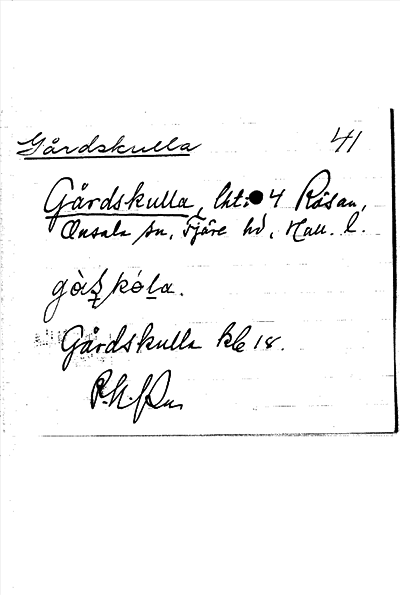 Gårdskulla 41
Gårdskulla, lht: 4 Rösan,
Onsala sn, Fjäre hd, Hall. l.
gàʂkóla.
Gårdskulla kbl 18.